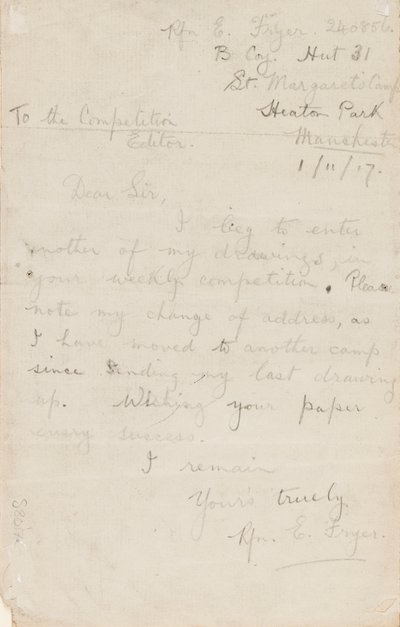 Rfn E. Fryer. 240856.
B Coy. Hut 31
St. Margaret's Camp
Heaton Park
Manchester
1/11/17.
To the Competition
Editor.
Dear Sir,
I beg to enter
another of my drawings, in
your weekly competition. Please
note my change of address, as
I have moved to another camp
since sending my last drawing
up. Wishing your paper
every success.
I remain
Yours truely
Rfn. E. Fryer.